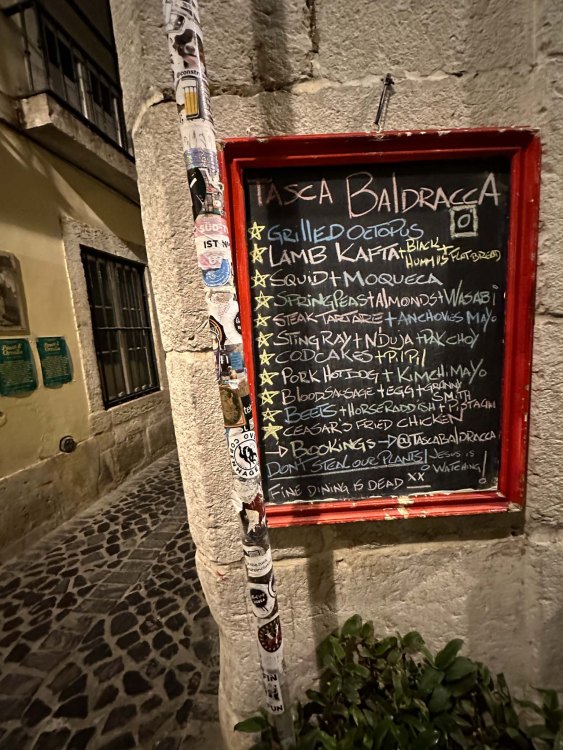 TASCA BAlDRACCA
GRILLED OCTOPUS
LAMB KAFTA + BLACK HUMMUS + FLATBREAD
SQUID + MOQUECA
SPRING PEAS + ALMONDS + WASABI
STEAK TARTARE + ANCHOVIES MAYO
STINGRAY + NDUJA + PAK CHOY
CODCAKES + PIPIL
PORK HOTDOG + KIMCHI MAYO
BLOODSAUSAGE + EGG + GRANNY SMITH
BEETS + HORSERADDISH + PISTACHI
CEASAR'S FRIED CHICKEN
→ BOOKINGS → @TASCABALDRACCA
DON'T STEAL OUR PLANTS! JESUS IS WATCHING!
FINE DINING IS DEAD XX
IST